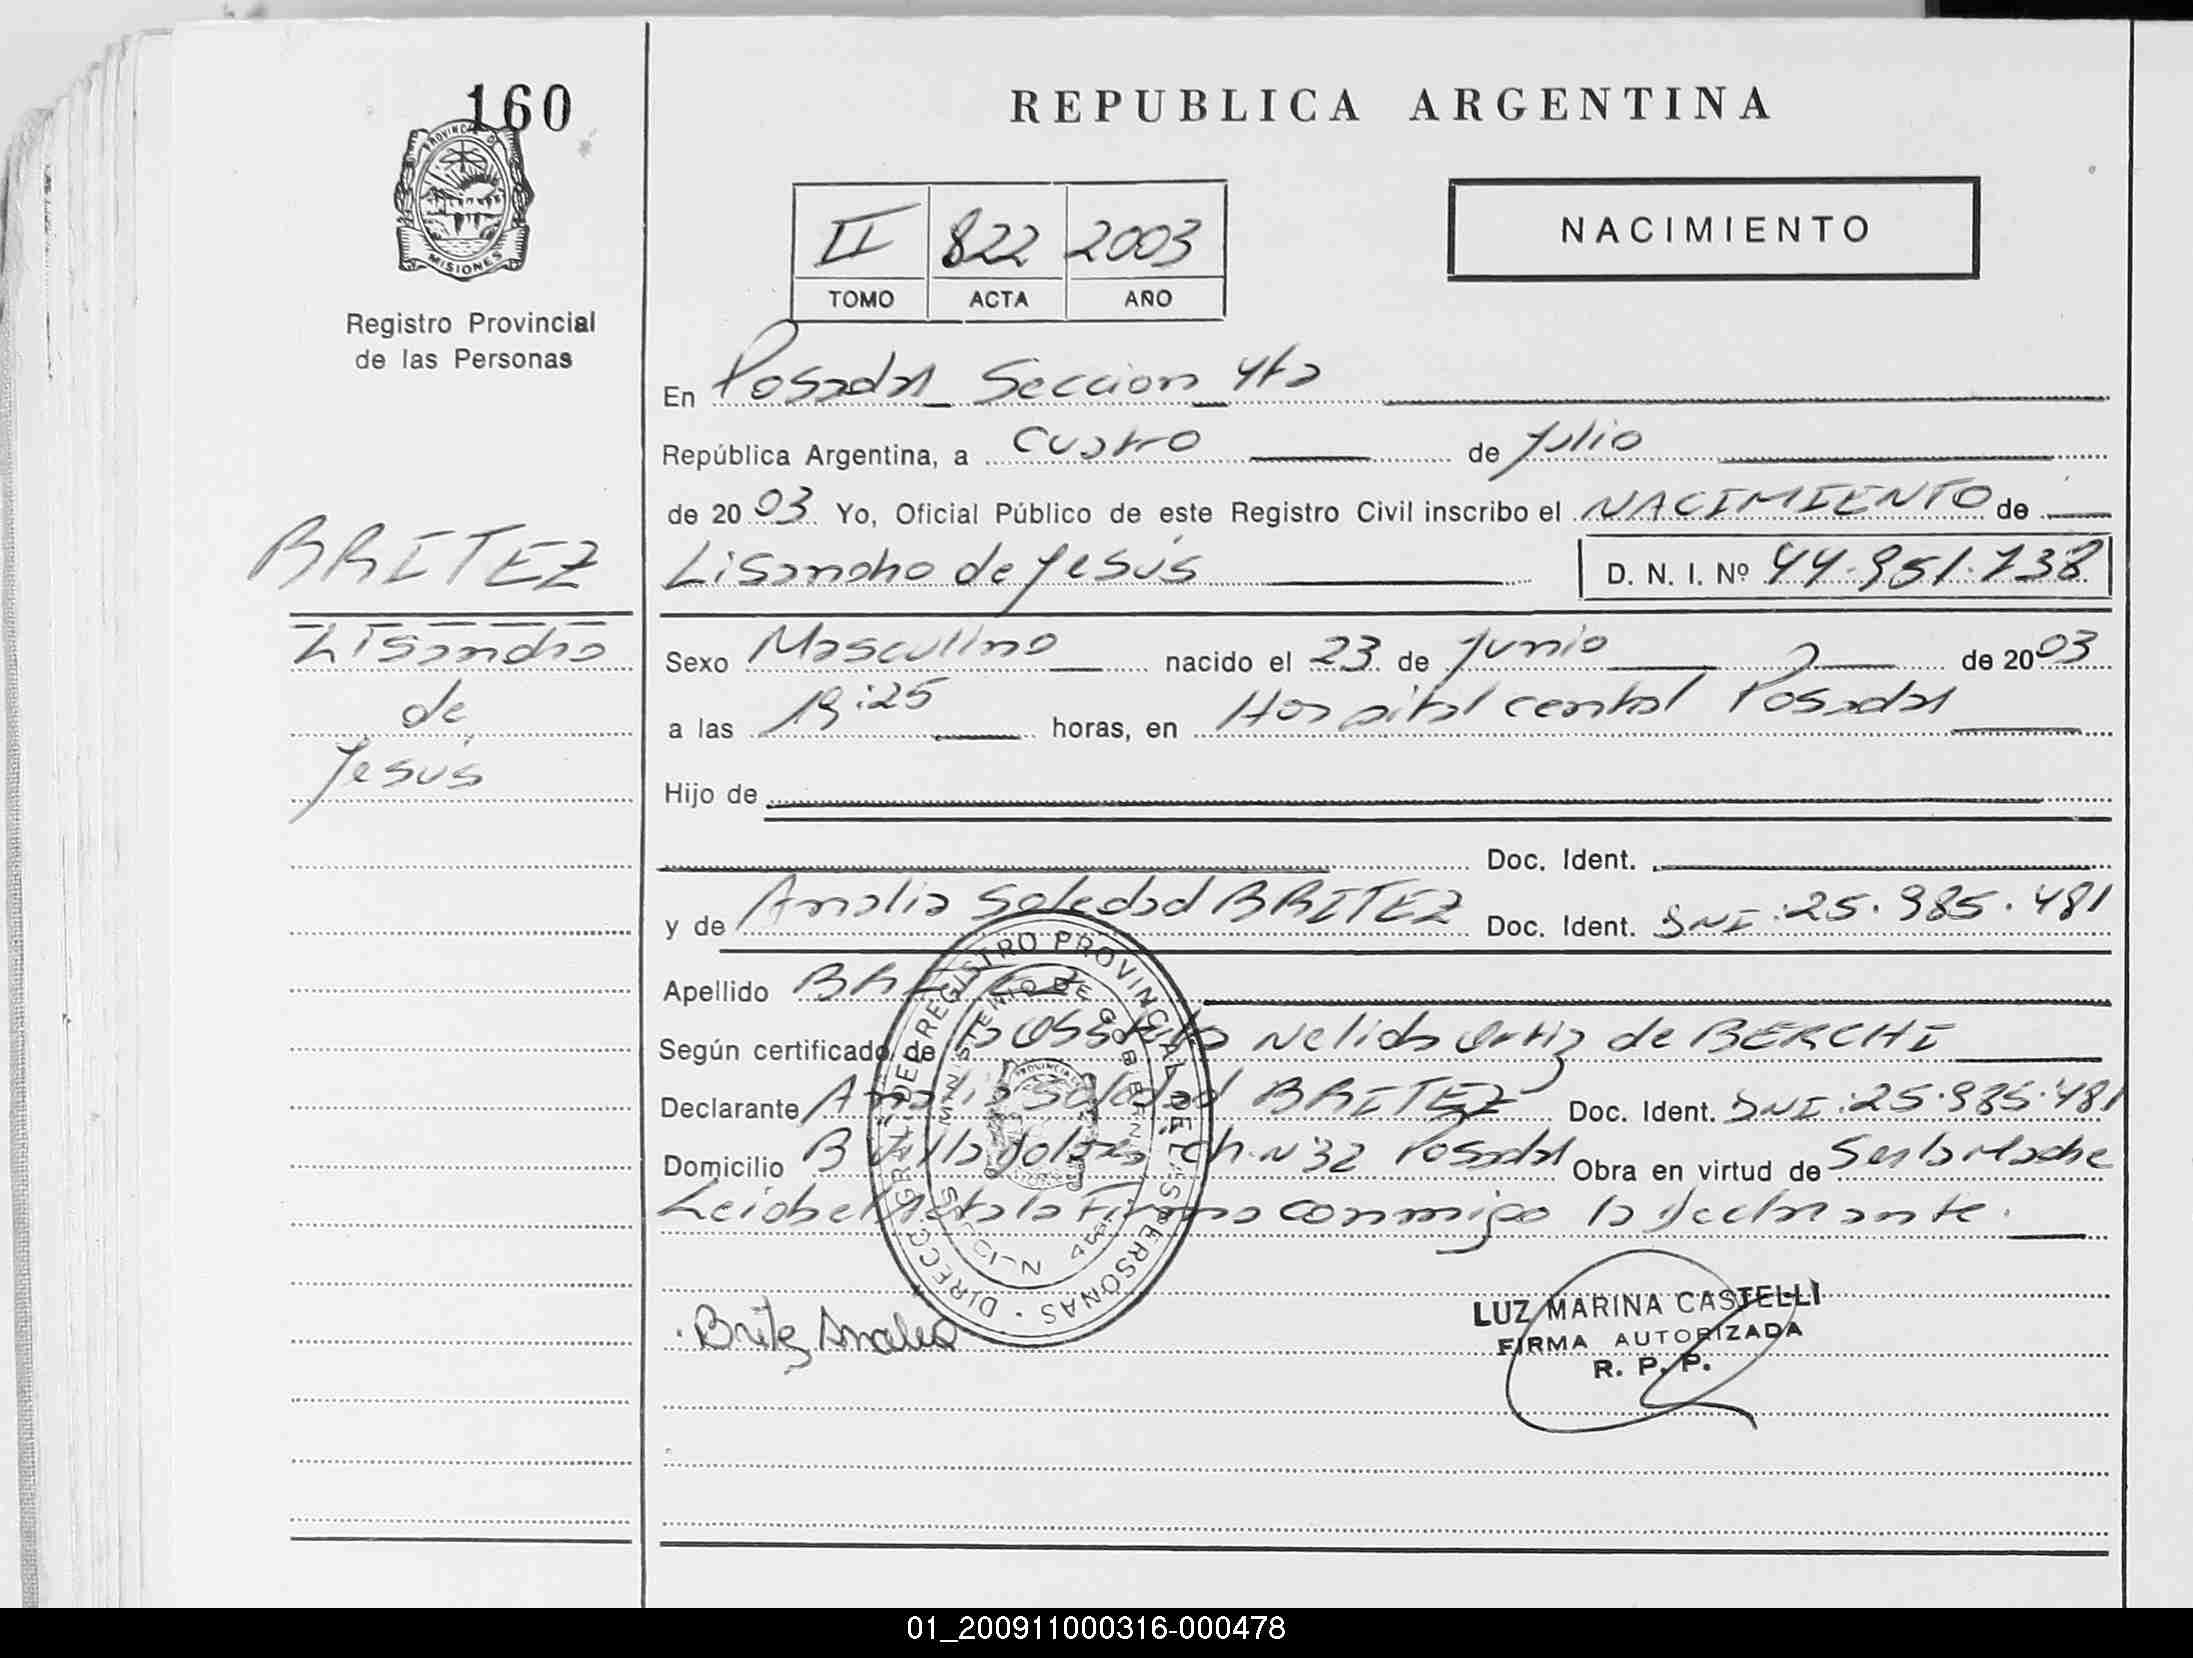 160
PROVINCIA DE
MISIONES
Registro Provincial
de las Personas
BRITEZ
Lisandro
de
Jesús
REPUBLICA ARGENTINA
II 822 2003
TOMO ACTA AÑO
NACIMIENTO
En Posadas Seccion 4ta
República Argentina, a cuatro de Julio
de 2003 Yo, Oficial Público de este Registro Civil inscribo el NACIMIENTO de
Lisandro de Jesús D. N. I. Nº 44.951.738
Sexo Masculino nacido el 23 de Junio de 2003
a las 19:25 horas, en Hospital central Posadas
Hijo de
Doc. Ident.
y de Analia Soledad BRITEZ Doc. Ident. DNI: 25.985.481
Apellido BRITEZ
Según certificado de la Obstetra Nelida Ortiz de BERCHI
Declarante Analia Soledad BRITEZ Doc. Ident. DNI: 25.985.481
Domicilio B Villa Ch. N 32 Posadas Obra en virtud de Ser la Madre
Leida el Acta la Firma conmigo la declarante.
DIRECC. GRAL. DEL REGISTRO PROVINCIAL DE LAS PERSONAS
MINISTERIO DE GOBIERNO
Britez Analia
LUZ MARINA CASTELLI
FIRMA AUTORIZADA
R. P. P.
01_200911000316-000478